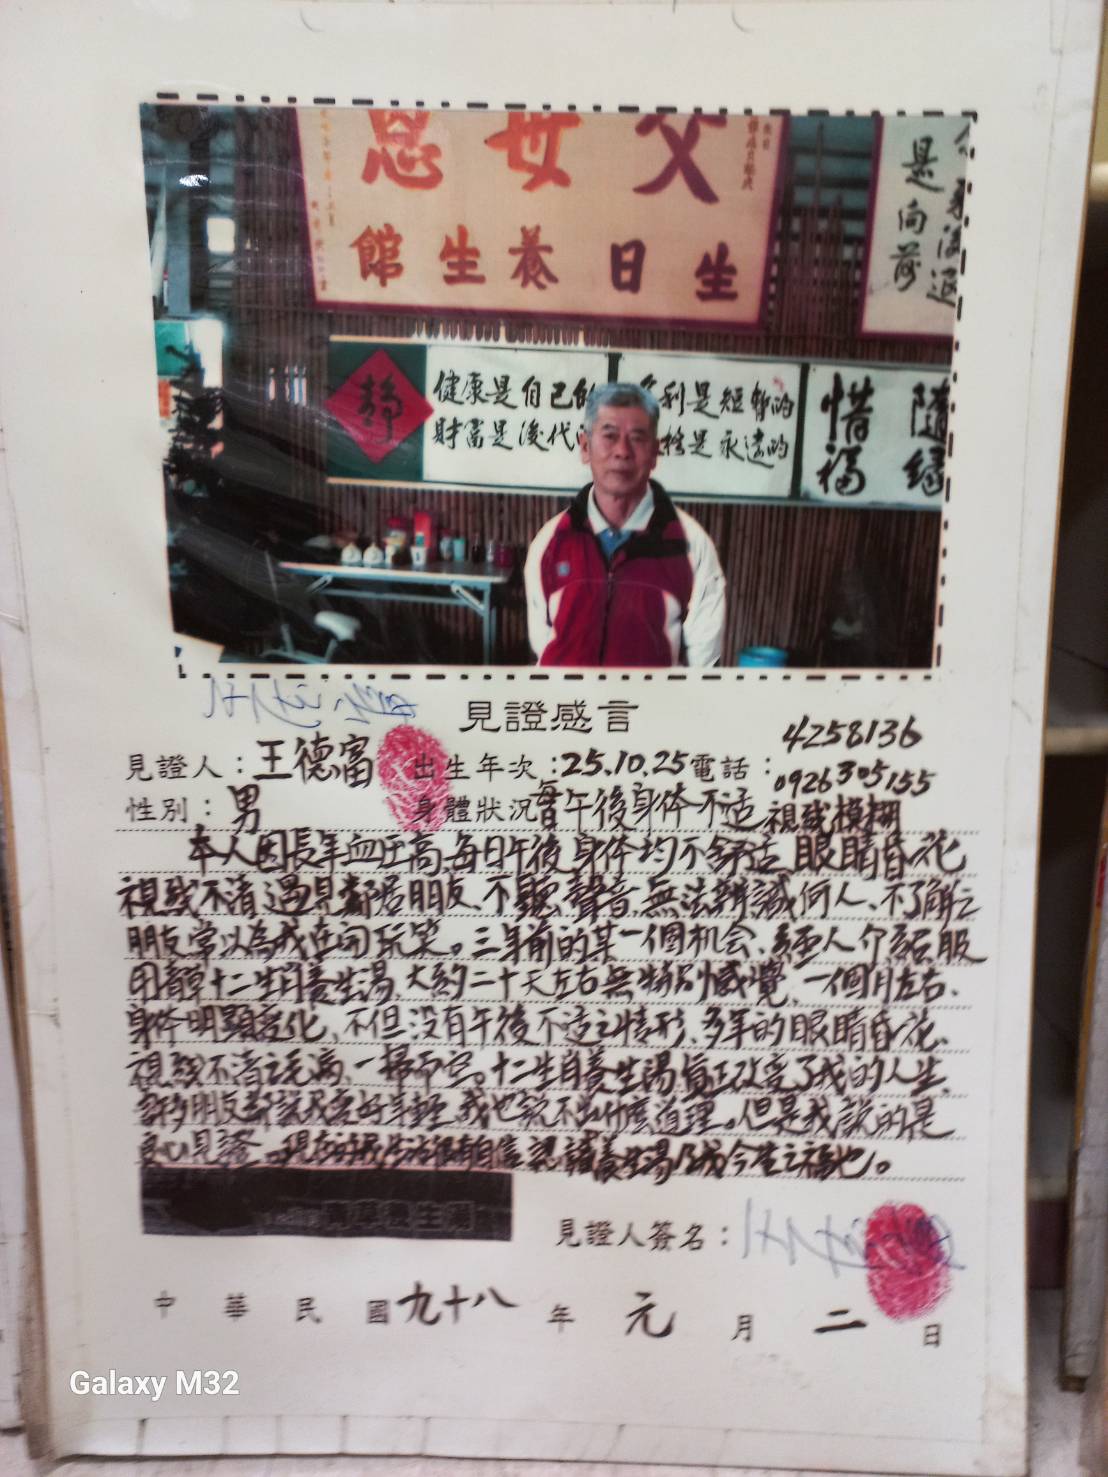 恩 母 父
館 生 養 日 生
是向前
靜
健康是自己的
財富是後代
利是短暫的
是永遠的
惜福
隨緣
見證感言
4258136
見證人：王德富 出生年次：25.10.25 電話：0926305155
性別：男 身體狀況 每日午後身体不适 視线模糊
本人因長年血圧高、每日午後身体均不舒适、眼睛昏花
視线不清、遇見鄰居朋友、不聽聲音、無法辨識何人、不了解之
朋友常以為我在開玩笑。三年前的某一個机会、經人介紹服
用青草十二生肖養生湯、大約二十天左右無特別感覺、一個月左右、
身体明顯変化、不但没有午後不适之情形、多年的眼睛昏花、
視线不清之毛病、一掃而空。十二生肖養生湯真正改変了我的人生、
許多朋友都說我変好年輕、我也說不出什麼道理。但是我說的是
良心見證。現在的我生活很有自信、認識養生湯乃我今生之福也。
青草養生湯
見證人簽名：
中華民國九十八年元月二日
Galaxy M32